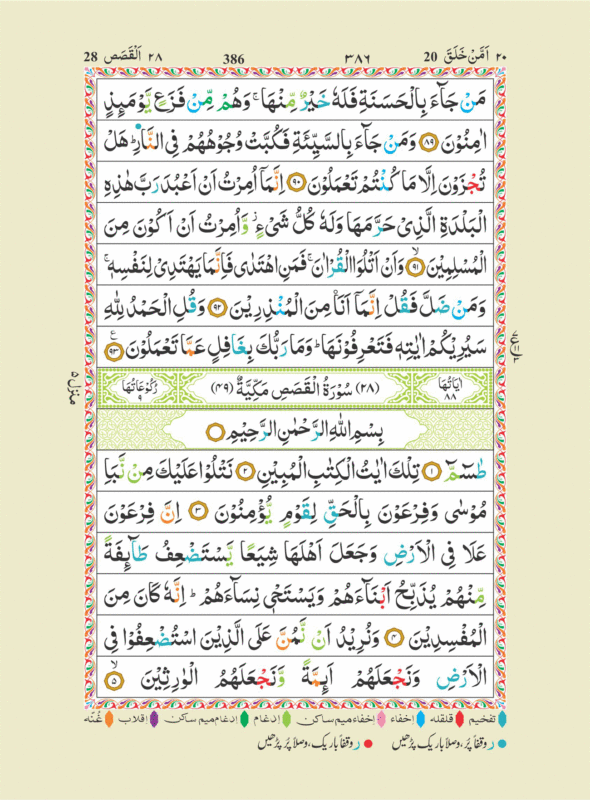 ٢٠ اَمَّنْ خَلَقَ 20 ٣٨٦ 386 ٢٨ اَلْقَصَص 28
مَنْ جَآءَ بِالْحَسَنَةِ فَلَهٗ خَيْرٌ مِّنْهَا ۚ وَهُمْ مِّنْ فَزَعٍ يَّوْمَىِٕذٍ
اٰمِنُوْنَ ﴿٨٩﴾ وَمَنْ جَآءَ بِالسَّيِّئَةِ فَكُبَّتْ وُجُوْهُهُمْ فِى النَّارِ ؕ هَلْ
تُجْزَوْنَ اِلَّا مَا كُنْتُمْ تَعْمَلُوْنَ ﴿٩٠﴾ اِنَّمَاۤ اُمِرْتُ اَنْ اَعْبُدَ رَبَّ هٰذِهِ
الْبَلْدَةِ الَّذِىْ حَرَّمَهَا وَلَهٗ كُلُّ شَىْءٍ ؗ وَّاُمِرْتُ اَنْ اَكُوْنَ مِنَ
الْمُسْلِمِيْنَ ۙ﴿٩١﴾ وَاَنْ اَتْلُوَا الْقُرْاٰنَ ۚ فَمَنِ اهْتَدٰى فَاِنَّمَا يَهْتَدِىْ لِنَفْسِهٖ ۚ
وَمَنْ ضَلَّ فَقُلْ اِنَّمَاۤ اَنَا۠ مِنَ الْمُنْذِرِيْنَ ﴿٩٢﴾ وَقُلِ الْحَمْدُ لِلّٰهِ
سَيُرِيْكُمْ اٰيٰتِهٖ فَتَعْرِفُوْنَهَا ؕ وَمَا رَبُّكَ بِغَافِلٍ عَمَّا تَعْمَلُوْنَ ﴿٩٣﴾ ع
منزل ٥
اٰيَاتُهَا ٨٨ (٢٨) سُوْرَةُ الْقَصَصِ مَكِّيَّةٌ (٤٩) رُكُوْعَاتُهَا ٩
بِسْمِ اللّٰهِ الرَّحْمٰنِ الرَّحِيْمِ
طٰسٓمّٓ ﴿١﴾ تِلْكَ اٰيٰتُ الْكِتٰبِ الْمُبِيْنِ ﴿٢﴾ نَتْلُوْا عَلَيْكَ مِنْ نَّبَاِ
مُوْسٰى وَفِرْعَوْنَ بِالْحَقِّ لِقَوْمٍ يُّؤْمِنُوْنَ ﴿٣﴾ اِنَّ فِرْعَوْنَ
عَلَا فِى الْاَرْضِ وَجَعَلَ اَهْلَهَا شِيَعًا يَّسْتَضْعِفُ طَآئِفَةً
مِّنْهُمْ يُذَبِّحُ اَبْنَآءَهُمْ وَيَسْتَحْىٖ نِسَآءَهُمْ ؕ اِنَّهٗ كَانَ مِنَ
الْمُفْسِدِيْنَ ﴿٤﴾ وَنُرِيْدُ اَنْ نَّمُنَّ عَلَى الَّذِيْنَ اسْتُضْعِفُوْا فِى
الْاَرْضِ وَنَجْعَلَهُمْ اَىِٕمَّةً وَّنَجْعَلَهُمُ الْوٰرِثِيْنَ ۙ﴿٥﴾
تفخیم قلقلہ إخفاء إخفاء میم ساکن إدغام إدغام میم ساکن إقلاب غُنّہ
ر وقفاً پُر، وصلاً باریک پڑھیں ر وقفاً باریک، وصلاً پُر پڑھیں